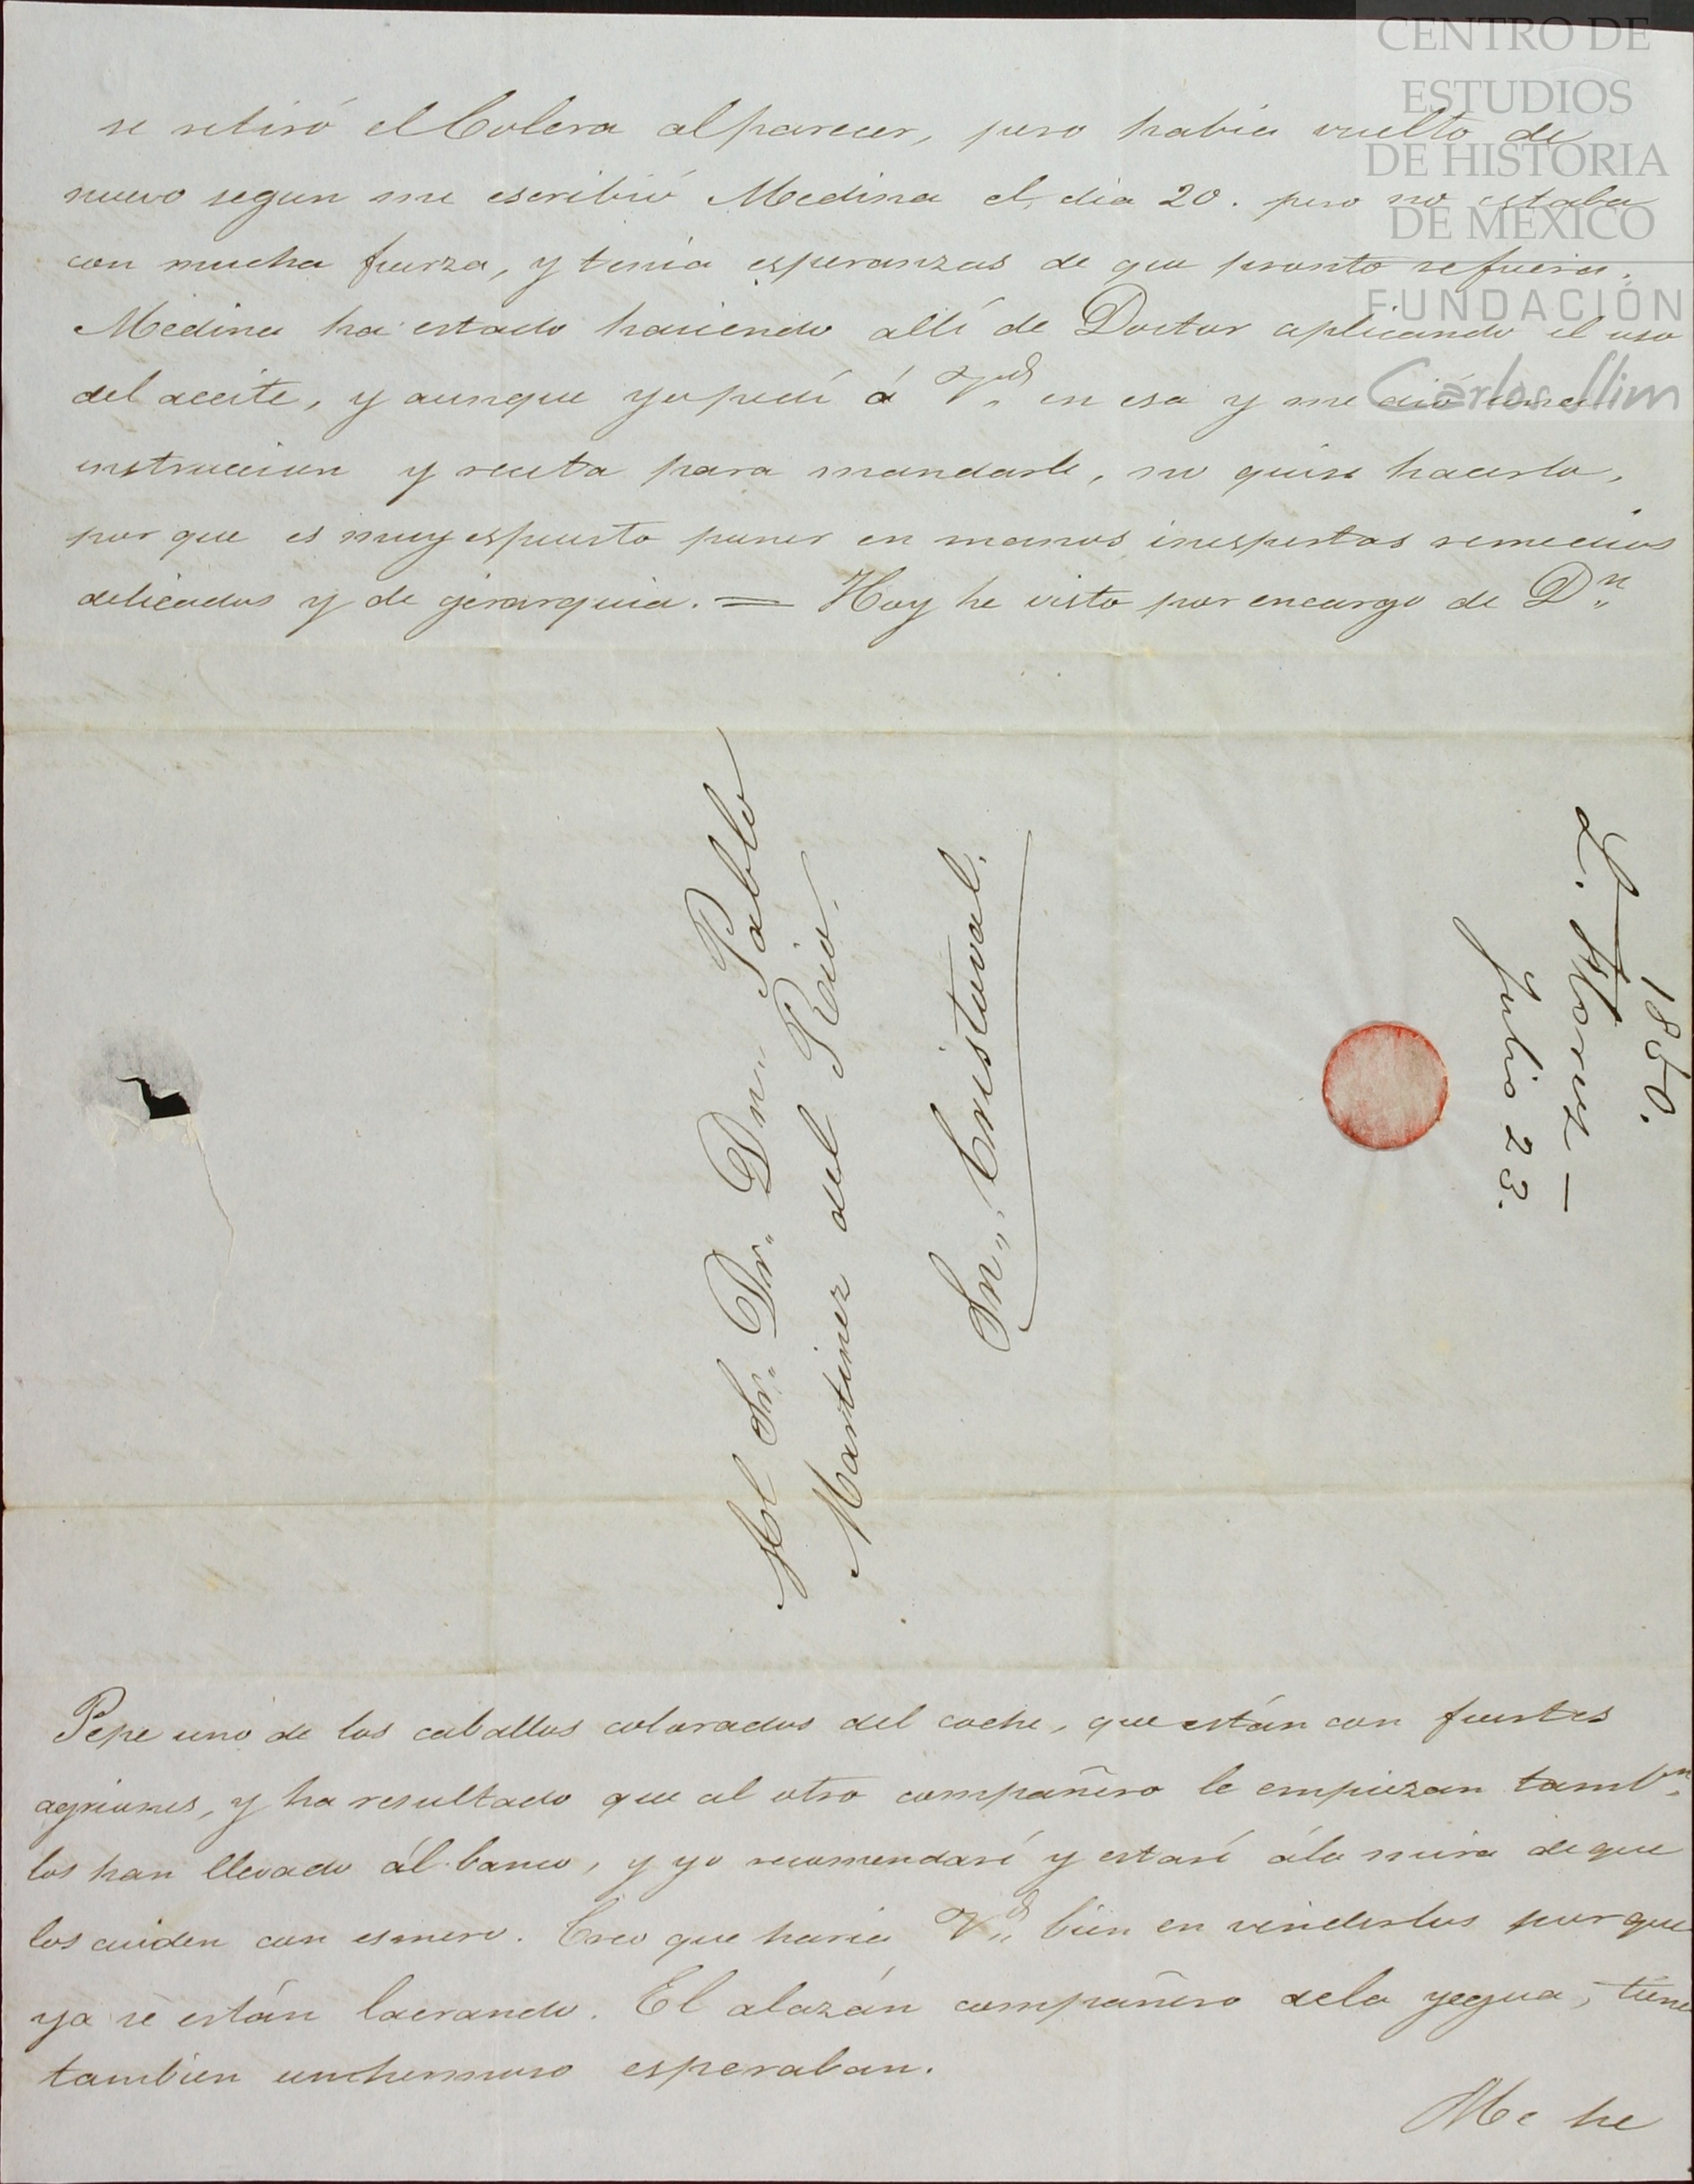 CENTRO DE
ESTUDIOS
DE HISTORIA
DE MÉXICO
FUNDACIÓN
Carlos Slim
se retiró el Colera al parecer, pero habia vuelto de
nuevo segun me escribió Medina el dia 20. pero no estaba
con mucha fuerza, y tenia esperanzas de que pronto se fuera.
Medina ha estado haciendo allí de Doctor aplicando el uso
del aceite, y aunque yo pedí á V.d en esa y me dió una
instruccion y receta para mandarle, no quise hacerlo,
por que es muy espuesto poner en manos inespertas remedios
delicados y de gerarquia. = Hoy he visto por encargo de D.n
Al Sr. Dr. Dn. Pablo
Martinez del Rio.
Sn. Cristoval.
1850.
L. Florez —
Julio 23.
Pepe uno de los caballos colorados del coche, que están con fuertes
agriones, y ha resultado que al otro compañero le empiezan tamb.n
los han llevado ál banco, y yo recomendaré y estaré ála mira de que
los cuiden con esmero. Creo que haria V.d bien en venderlos por que
ya se están lacrando. El alazán compañero dela yegua, tiene
tambien un hermoso esparaban.
Me he